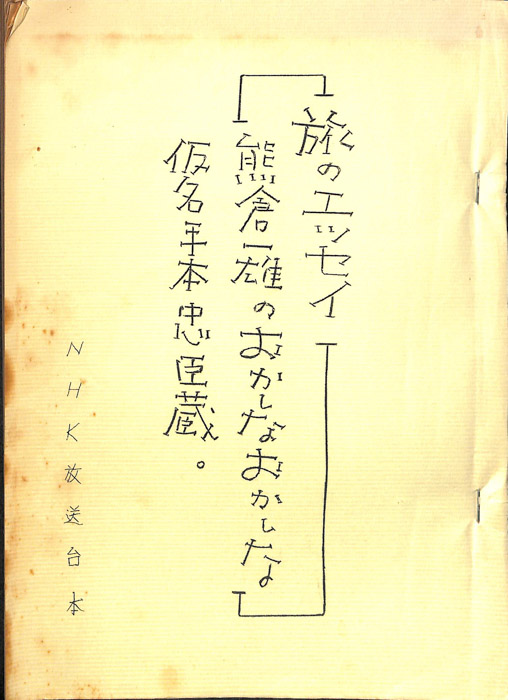 旅のエッセイ
熊倉一雄のおかしなおかしな
仮名手本忠臣蔵。
NHK放送台本